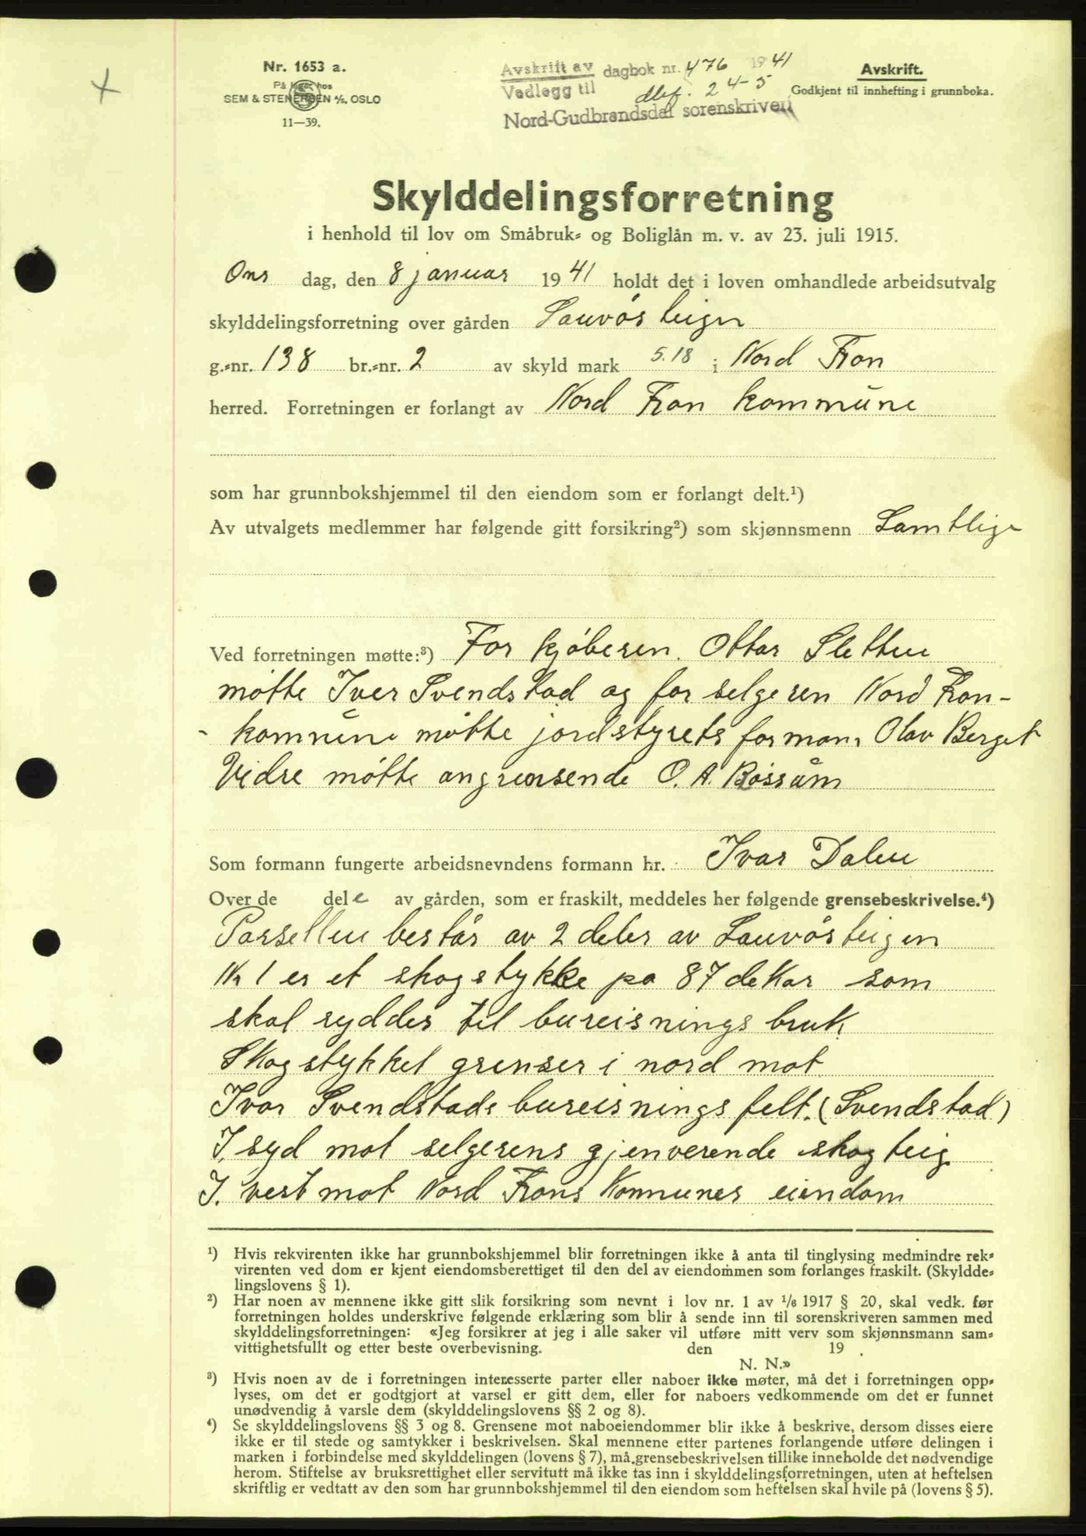 Nr. 1653 a.
På lager hos
SEM & STENERSEN A/S, OSLO
11—39.
Avskrift av dagbok nr. 476 1941
Vedlegg til dbf. 24-5
Nord-Gudbrandsdal sorenskriveri
Avskrift.
Godkjent til innhefting i grunnboka.
Skylddelingsforretning
i henhold til lov om Småbruk- og Boliglån m. v. av 23. juli 1915.
Ons dag, den 8 januar 1941 holdt det i loven omhandlede arbeidsutvalg
skylddelingsforretning over gården Lauvåsteigen
g.-nr. 138 br.-nr. 2 av skyld mark 5.18 i Nord Fron
herred. Forretningen er forlangt av Nord Fron kommune
som har grunnbokshjemmel til den eiendom som er forlangt delt.¹)
Av utvalgets medlemmer har følgende gitt forsikring²) som skjønnsmenn Samtlige
Ved forretningen møtte:³) For kjøberen. Ottar Sletten
møtte Iver Svendstad og for selgeren Nord Fron-
- kommune møtte jordstyrets formann Olav Berget
Vidre møtte angrensende O. A. Bøssum
Som formann fungerte arbeidsnevndens formann hr. Ivar Dalen
Over de dele av gården, som er fraskilt, meddeles her følgende grensebeskrivelse.⁴)
Parsellen består av 2 deler av Lauvåsteigen
Nr 1 er et skogstykke på 87 dekar som
skal ryddes til bureisningsbruk.
Skogstykket grenser i nord mot
Ivar Svendstads bureisningsfelt. (Svendstad)
I. syd mot selgerens gjenverende skogteig
I. vest mot Nord Frons Kommunes eiendom
¹) Hvis rekvirenten ikke har grunnbokshjemmel blir forretningen ikke å anta til tinglysing medmindre rek-
virenten ved dom er kjent eiendomsberettiget til den del av eiendommen som forlanges fraskilt. (Skyldde-
lingslovens § 1).
²) Har noen av mennene ikke gitt slik forsikring som nevnt i lov nr. 1 av ¹/₆ 1917 § 20, skal vedk. før
forretningen holdes underskrive følgende erklæring som blir å sende inn til sorenskriveren sammen med
skylddelingsforretningen: «Jeg forsikrer at jeg i alle saker vil utføre mitt verv som skjønnsmann sam-
vittighetsfullt og etter beste overbevisning. den 19 .
N. N.»
³) Hvis noen av de i forretningen interesserte parter eller naboer ikke møter, må det i forretningen opp-
lyses, om det er godtgjort at varsel er gitt dem, eller for naboers vedkommende om det er funnet
unødvendig å varsle dem (skylddelingslovens §§ 2 og 8).
⁴) Se skylddelingslovens §§ 3 og 8. Grensene mot naboeiendommer blir ikke å beskrive, dersom disses eiere
ikke er til stede og samtykker i beskrivelsen. Skal mennene etter partenes forlangende utføre delingen i
marken i forbindelse med skylddelingen (lovens § 7), må grensebeskrivelsen tillike inneholde det nødvendige
herom. Stiftelse av bruksrettighet eller servitutt må ikke tas inn i skylddelingsforretningen, uten at heftelsen
skriftlig er vedtatt av den som har grunnbokshjemmel til den eiendom som heftelsen skal hvile på (lovens § 5).